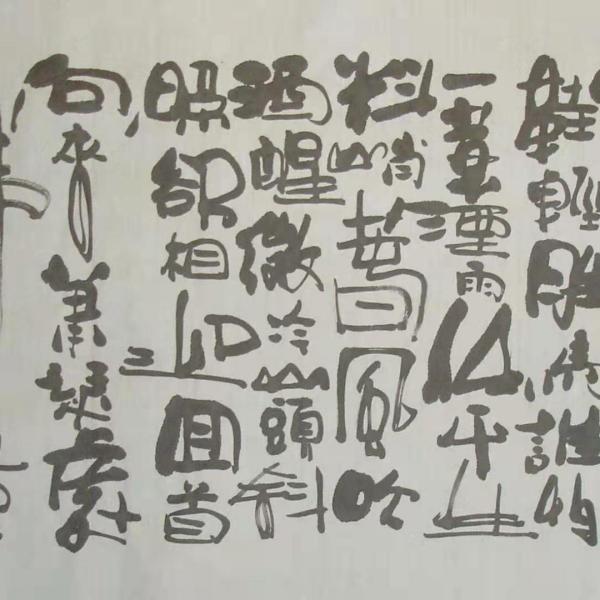 鞋輕勝馬誰怕
一蓑煙雨任平生
料峭春風吹
酒醒微冷山頭斜
照卻相迎回首
向來蕭瑟處